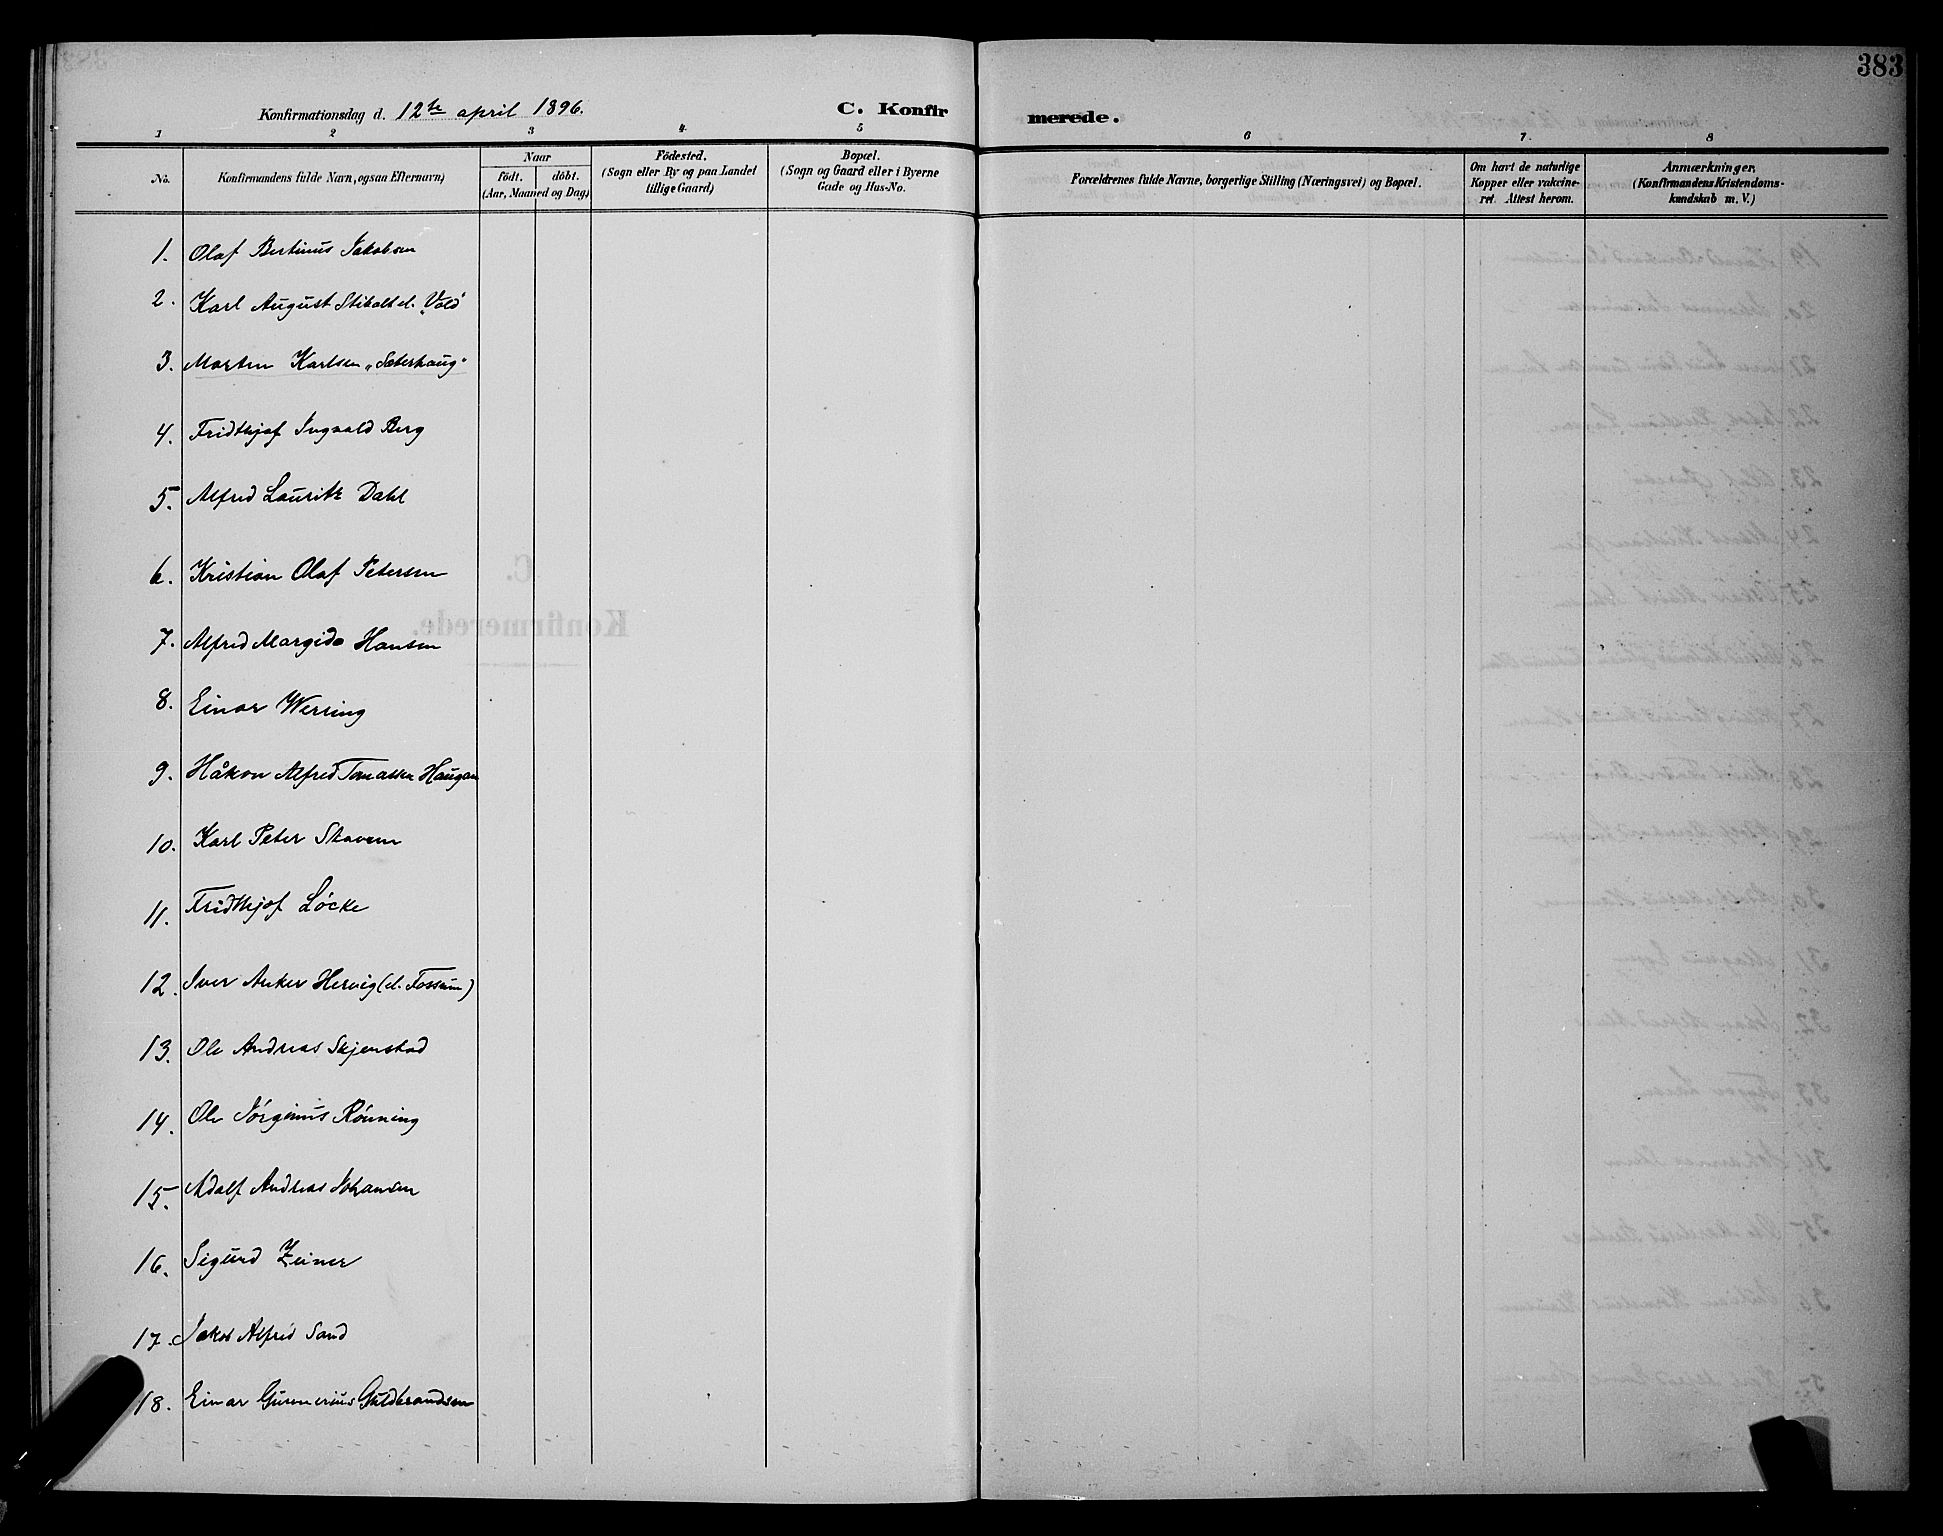 383
Konfirmationsdag d. 12te april 1896.
C. Konfirmerede.
1 2 3 4 5 6 7 8
No.
Konfirmandens fulde Navn, ogsaa Efternavn)
Naar
födt. döbt.
(Aar, Maaned og Dag)
Födested.
(Sogn eller By og paa Landet
tillige Gaard)
Bopæl.
(Sogn og Gaard eller i Byerne
Gade og Hus-No.
Forældrenes fulde Navne, borgerlige Stilling (Næringsvei) og Bopæl.
Om havt de naturlige
Kopper eller vakcine-
ret. Attest herom.
Anmærkninger.
(Konfirmandens Kristendoms-
kundskab m. V.)
1. Olaf Bertinus Jakobsen
2. Karl August Stibolt el. "Vold"
3. Morten Karlsen „Sæterhaug"
4. Fridthjof Ingvald Berg
5. Alfred Lauritz Dahl
6. Kristian Olaf Petersen
7. Alfred Margido Hansen
8. Einar Werring
9. Håkon Alfred Tomassen Haugan
10. Karl Peter Stavem
11. Fridthjof Löcke
12. Iver Anker Hervig (el. Fossum)
13. Ole Andreas Skjenstad
14. Ole Jörginus Rönning
15. Adolf Andreas Johansen
16. Sigurd Zeiner
17. Jakob Alfred Sand
18. Einar Gunnerius Guldbrandsen